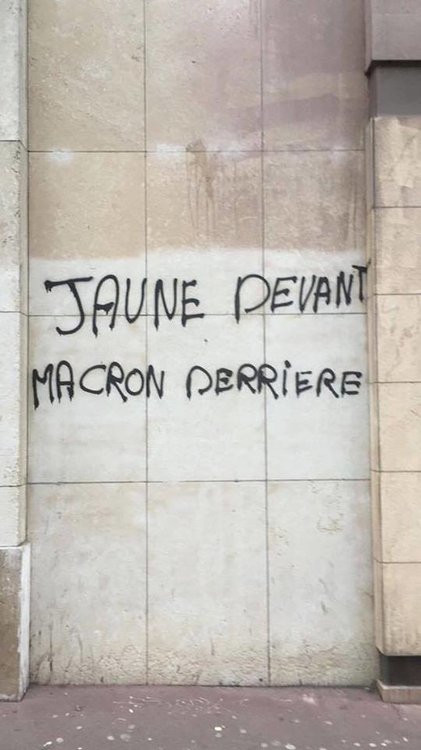 JAUNE DEVANT
MACRON DERRiERE